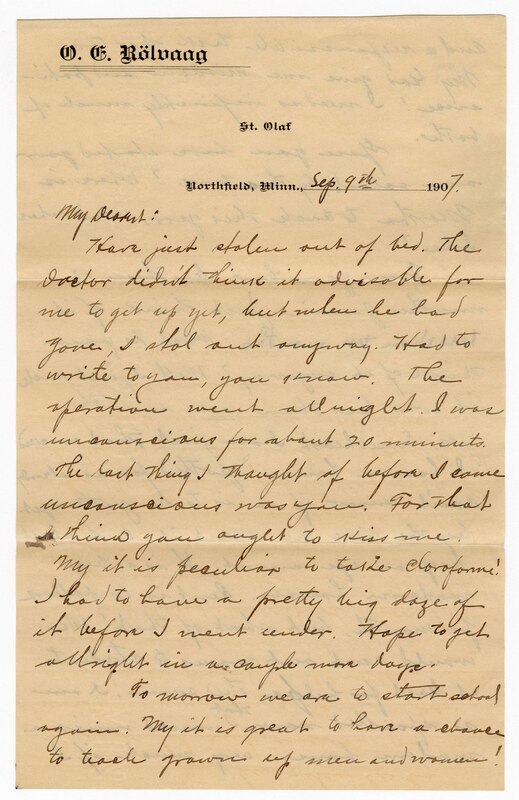 O. E. Rölvaag
St. Olaf
Northfield, Minn., Sep. 9th 1907.
My Dearest:
Have just stolen out of bed. The
Doctor didn't think it advisable for
me to get up yet, but when he had
gone, I stol out anyway. Had to
write to you, you know. The
operation went allright. I was
unconscious for about 20 minuts.
The last thing I thought of before I came
unconscious was you. For that
I think you ought to kiss me.
My it is peculiar to take cloroforme!
I had to have a pretty big doze of
it before I went under. Hope to get
allright in a couple more days.
To morrow we are to start school
again. My it is great to have a chance
to teach grown up men and women!